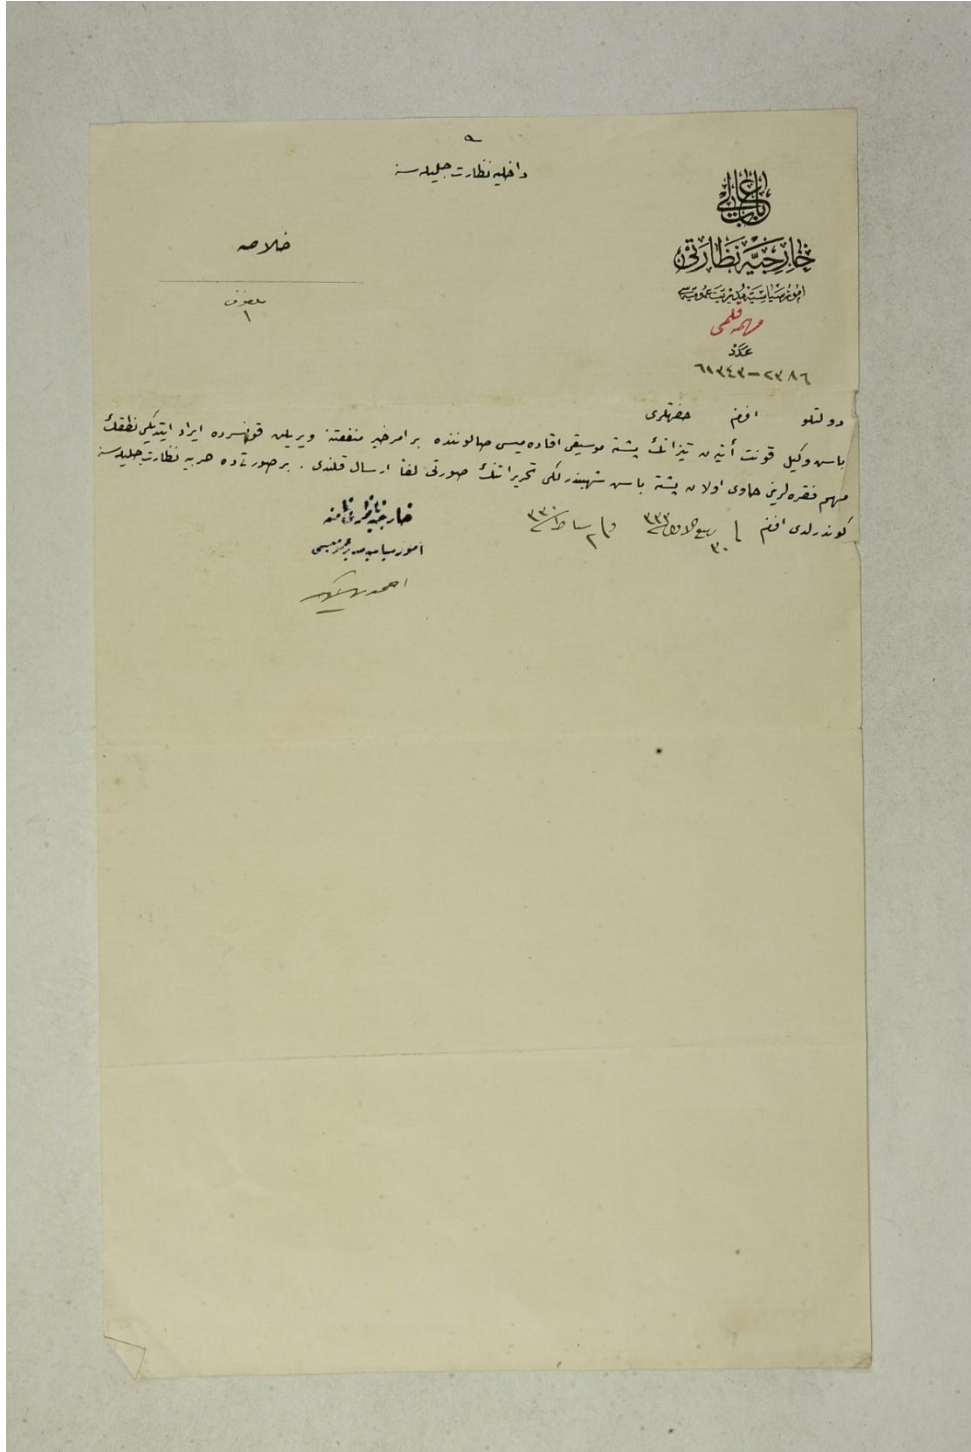 داخلیه نظارت جلیله‌سنه
باب عالی
خارجیه نظارتی
امور سیاسیه مدیریت عمومیه‌سی
مهمه قلمی
عدد
٦٩٣٤٣ — ٢٣٨٦
خلاصه
ملفوف
١
دولتلو افندم حضرتلری
باش وکیل قونت أتیه‌ن تیزانك پشته موسیقی اقاده‌میسی صالوننده بر امر خیر منفعتنه ویریلن قونسرده ایراد ایتدیکی نطقك
مهم فقره‌لرینی حاوی اولان پشته باش شهبندرلکی تحریراتنك صورتی لفاً ارسال قلندی . بر صورتی ده حربیه نظارت جلیله‌سنه
کوندرلدی افندم فی ٣٠ ربیع الاول سنه ٣٣٣ و فی ٢ شباط سنه ٣٣٠
خارجیه ناظری نامنه
امور سیاسیه مدیر عمومیسی
احمد